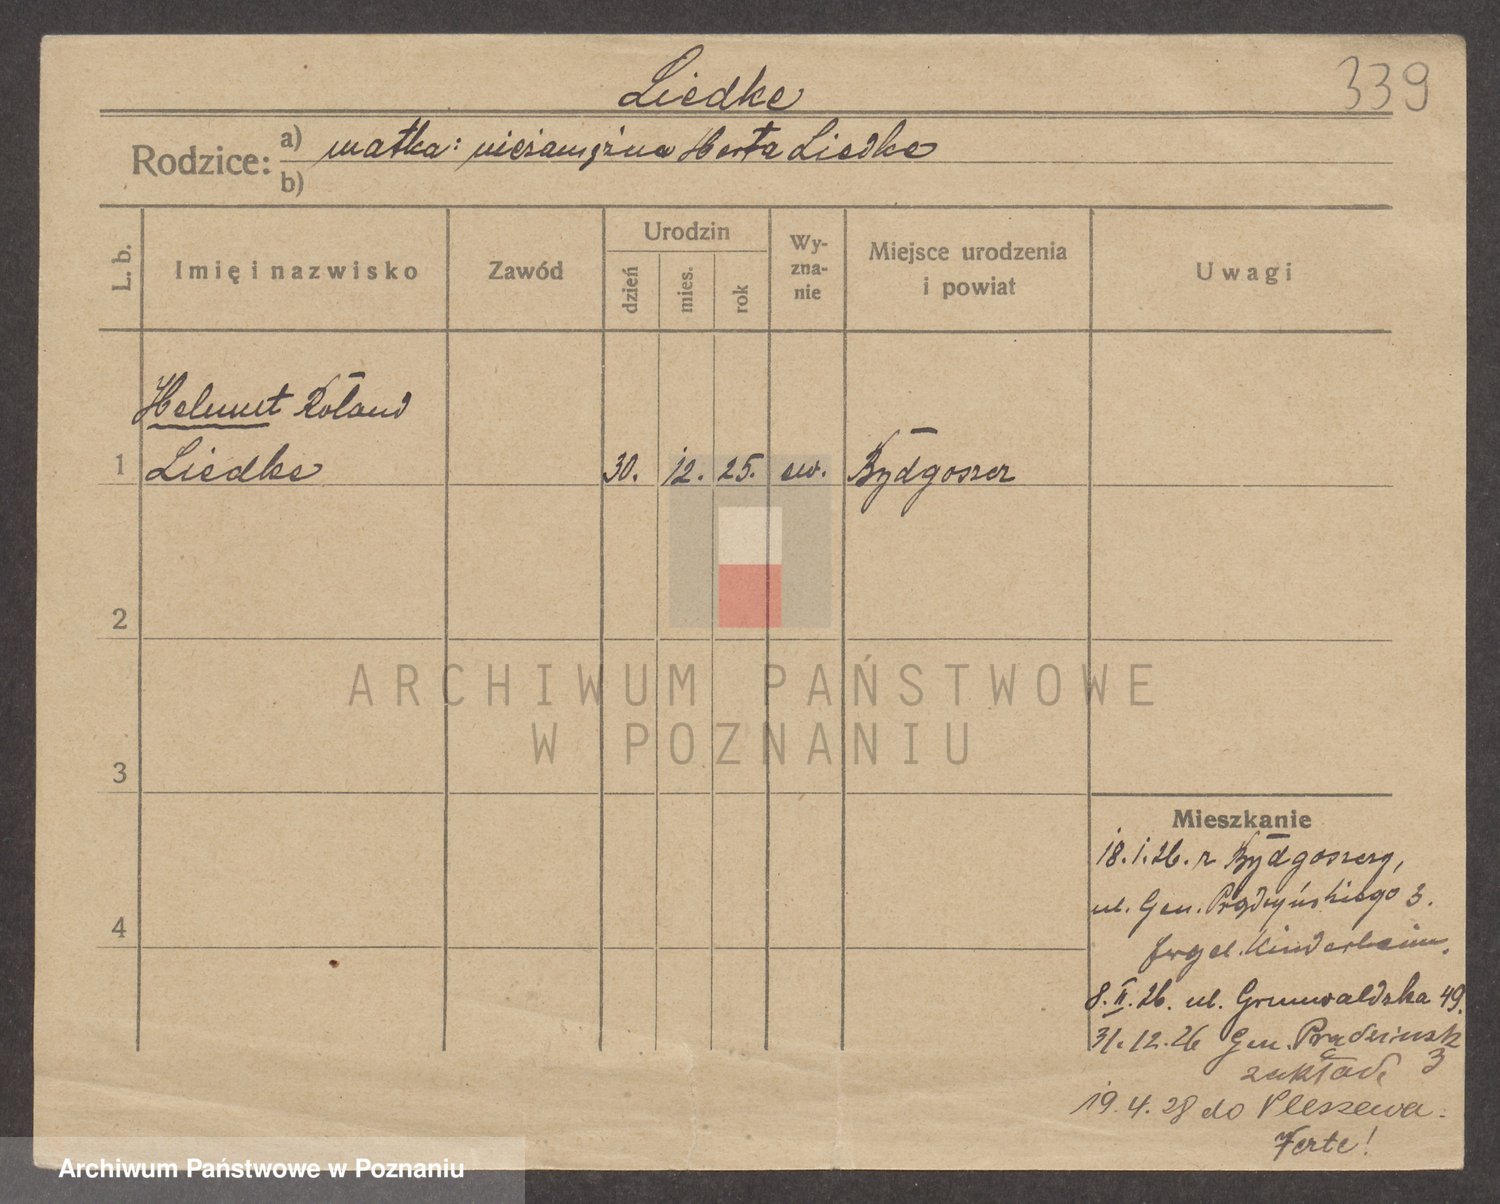 Liedke
339
Rodzice:
a) matka: niezamężna Herta Liedke
b)
L. b.
Imię i nazwisko
Zawód
Urodzin
dzień
mies.
rok
Wy-
zna-
nie
Miejsce urodzenia
i powiat
Uwagi
Helmut Roland
1 Liedke 30. 12. 25. ew. Bydgoszcz
2
ARCHIWUM PAŃSTWOWE
W POZNANIU
3
Mieszkanie
18.1.26. z Bydgoszczy,
ul. Gen. Prądzyńskiego 3.
Kinderheim.
4
8.II.26. ul. Grunwaldzka 49.
31.12.26 Gen. Prądzinsk
zakład 3
19.4.28 do Pleszewa.
Verte!
Archiwum Państwowe w Poznaniu